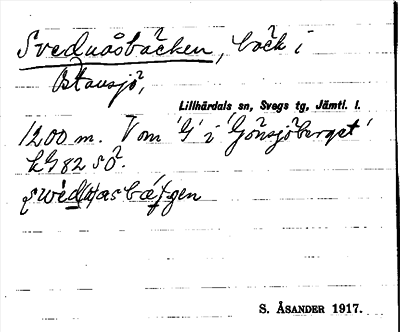 Svednåsbäcken, bäck i
Östansjö,
Lillhärdals sn, Svegs tg, Jämtl. l.
1200 m. V om 'G' i 'Gönsjöberget'
kG 82 SÖ.
S. ÅSANDER 1917.